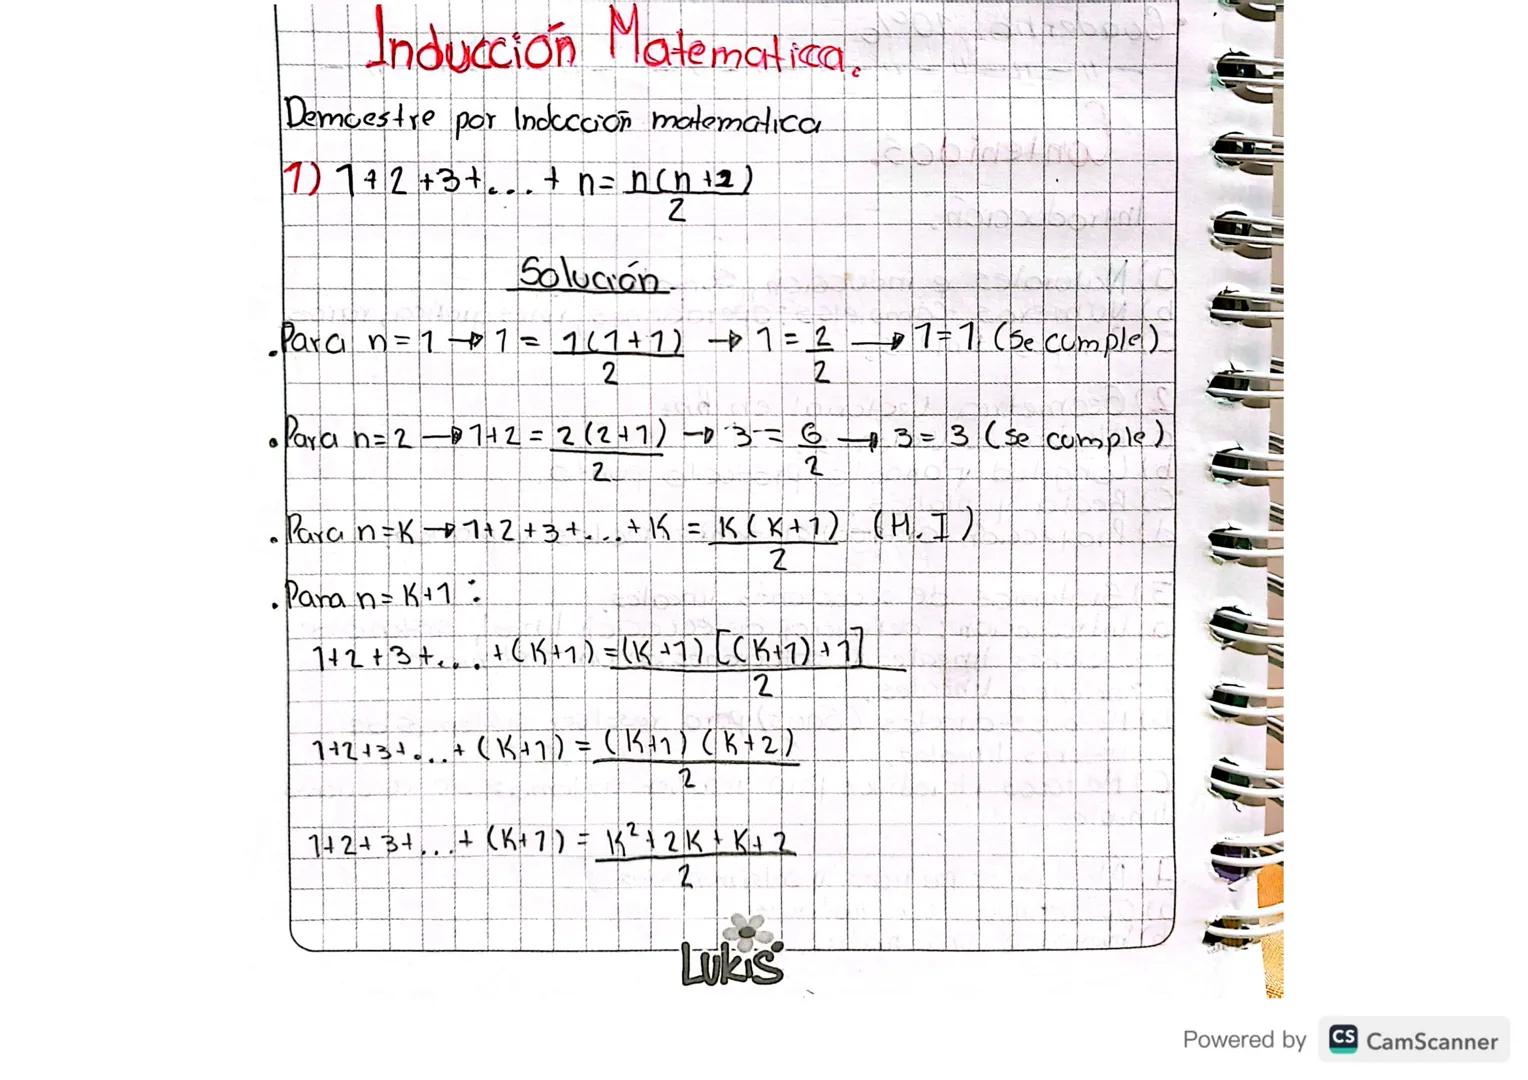 Inducción Matematica.
Demuestre por Inducción matematica
1) 1+2+3+...+ n= n(n+2)/2
Solución
.Para n=1 → 1 = 1(1+1)/2 → 1 = 2/2 → 1=1 (Se cumple)
.Para n=2 → 1+2 = 2(2+1)/2 → 3 = 6/2 → 3=3 (Se cumple)
.Para n=K → 1+2+3+...+K = K(K+1)/2 (H.I)
.Para n=K+1:
1+2+3+...+(K+1)=(K+1)[(K+1)+1]/2
1+2+3+...+(K+1)=(K+1)(K+2)/2
1+2+3+...+(K+1)=K²+2K+K+2/2
LUKIS
Powered by CS CamScanner